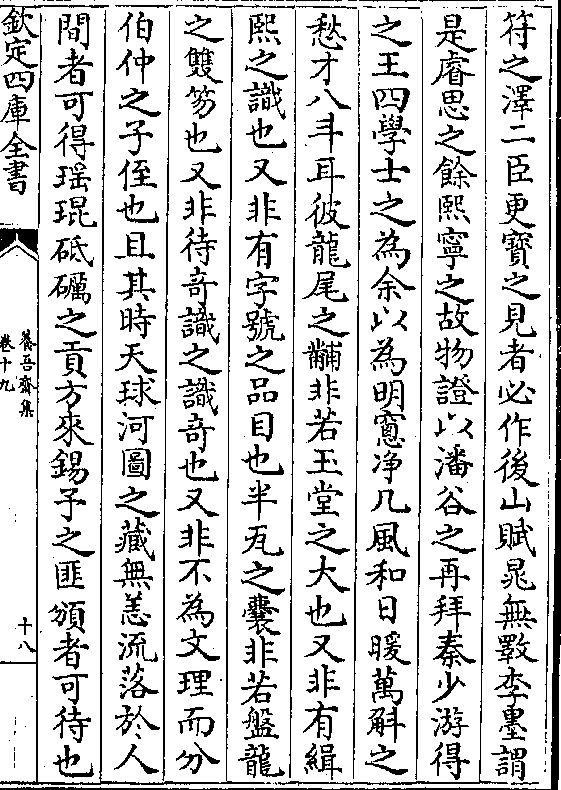 符之澤二臣更寳之見者必作後山賦晁無斁李墨謂
是睿思之餘熙寧之故物證以潘谷之再拜秦少游得
之王四學士之為余以為明窻净几風和日暖萬斛之
愁才八斗耳彼龍尾之黼非若玉堂之大也又非有緝
熙之識也又非有字號之品目也半瓦之囊非若盤龍
之雙笏也又非待奇識之識奇也又非不為文理而分
伯仲之子侄也且其時天球河圖之藏無恙流落於人
間者可得瑶琨砥礪之貢方來錫予之匪頒者可待也
欽定四庫全書
養吾齋集
卷十九
十八